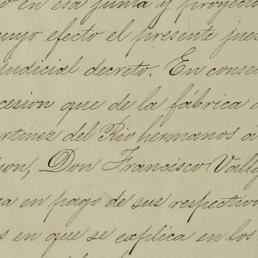 en esa junta y proyec
cuyo efecto el presente jue
judicial decreto. En conse
cesion que de la fábrica
artinez del Rio hermanos á
son, Don Francisco Valle
a en pago de sus respectivo
s en que se explica en los